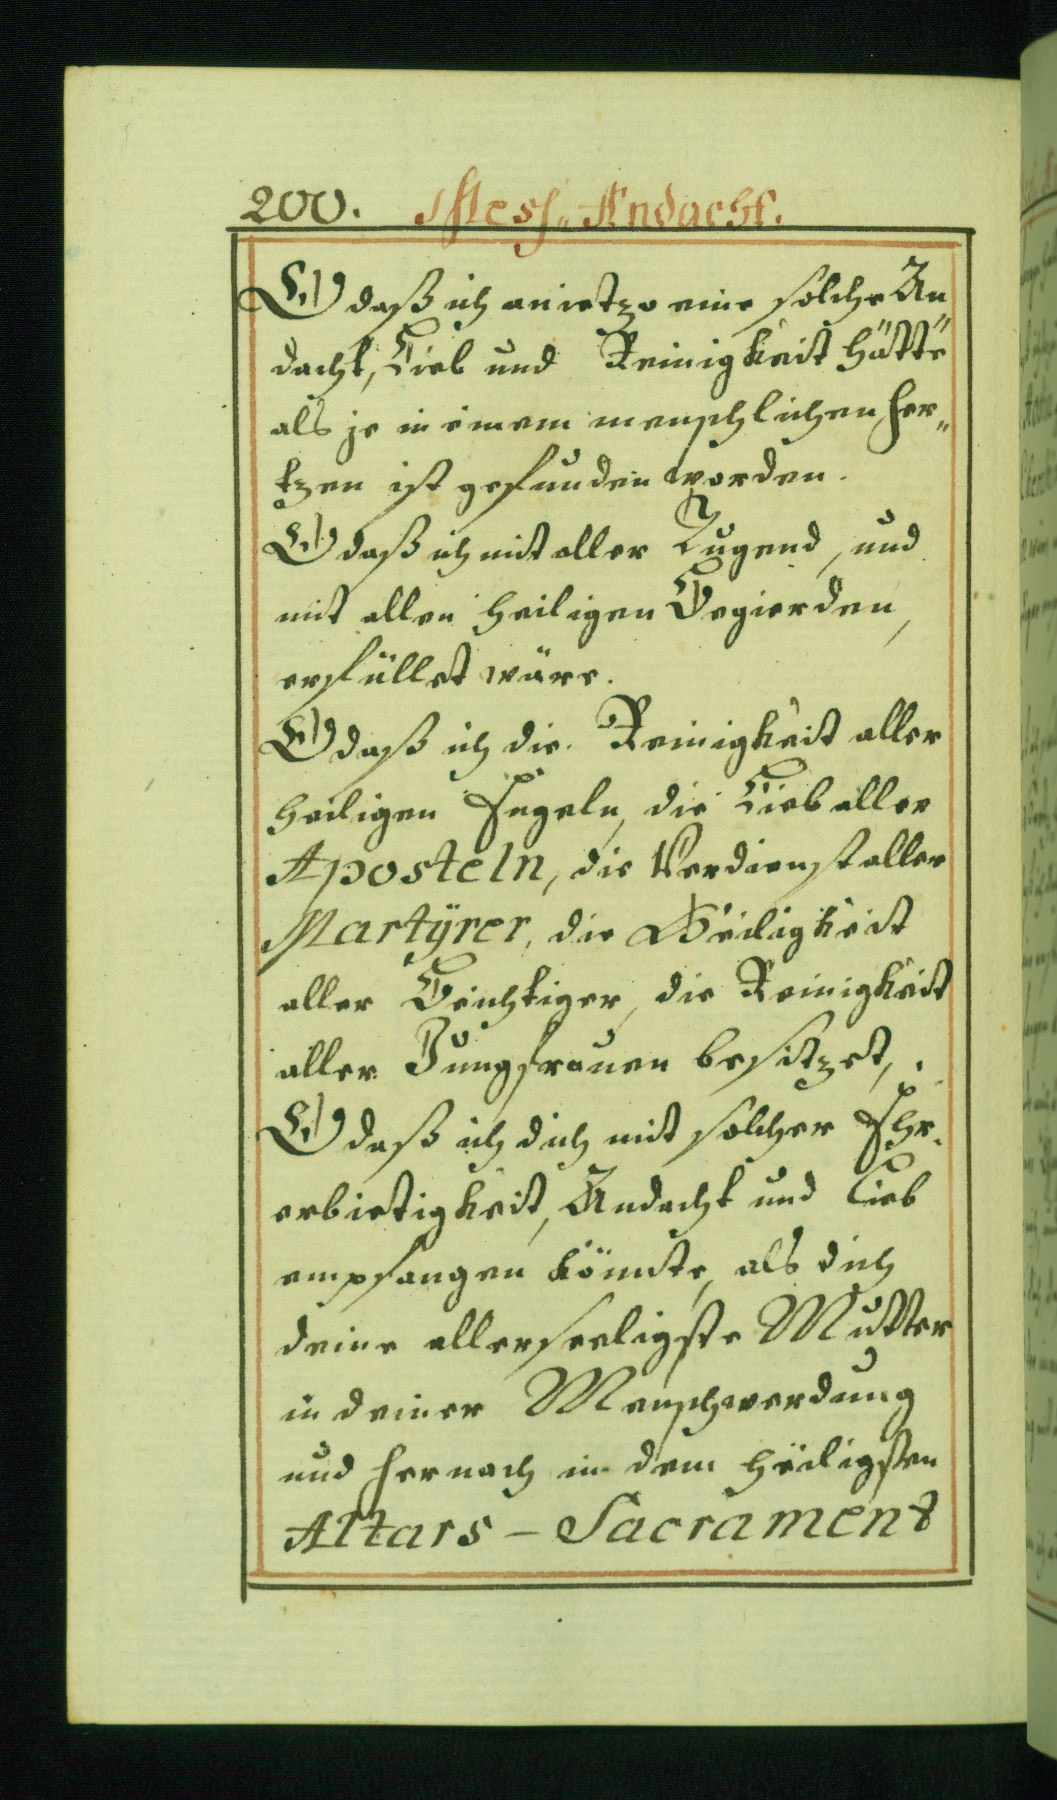 200. Mess-Andacht.
O daß ich anietzo eine solche An„
dacht, Lieb und Reinigkeit hätte
als je in einem menschlichen Her„
tzen ist gefunden worden.
O daß ich mit aller Tugend, und
mit allen heiligen Begierden,
erfüllet wäre.
O daß ich die Reinigkeit aller
heiligen Engeln, die Lieb aller
Aposteln, die Verdienst aller
Martÿrer, die Heiligkeit
aller Beichtiger, die Reinigkeit
aller Jungfrauen besitzet,
O daß ich dich mit solcher Ehr-
erbietigkeit, Andacht und Lieb
empfangen könnte, als dich
deine allerseeligste Mutter
in deiner Menschwerdung
und hernach in dem heiligsten
Altars - Sacrament